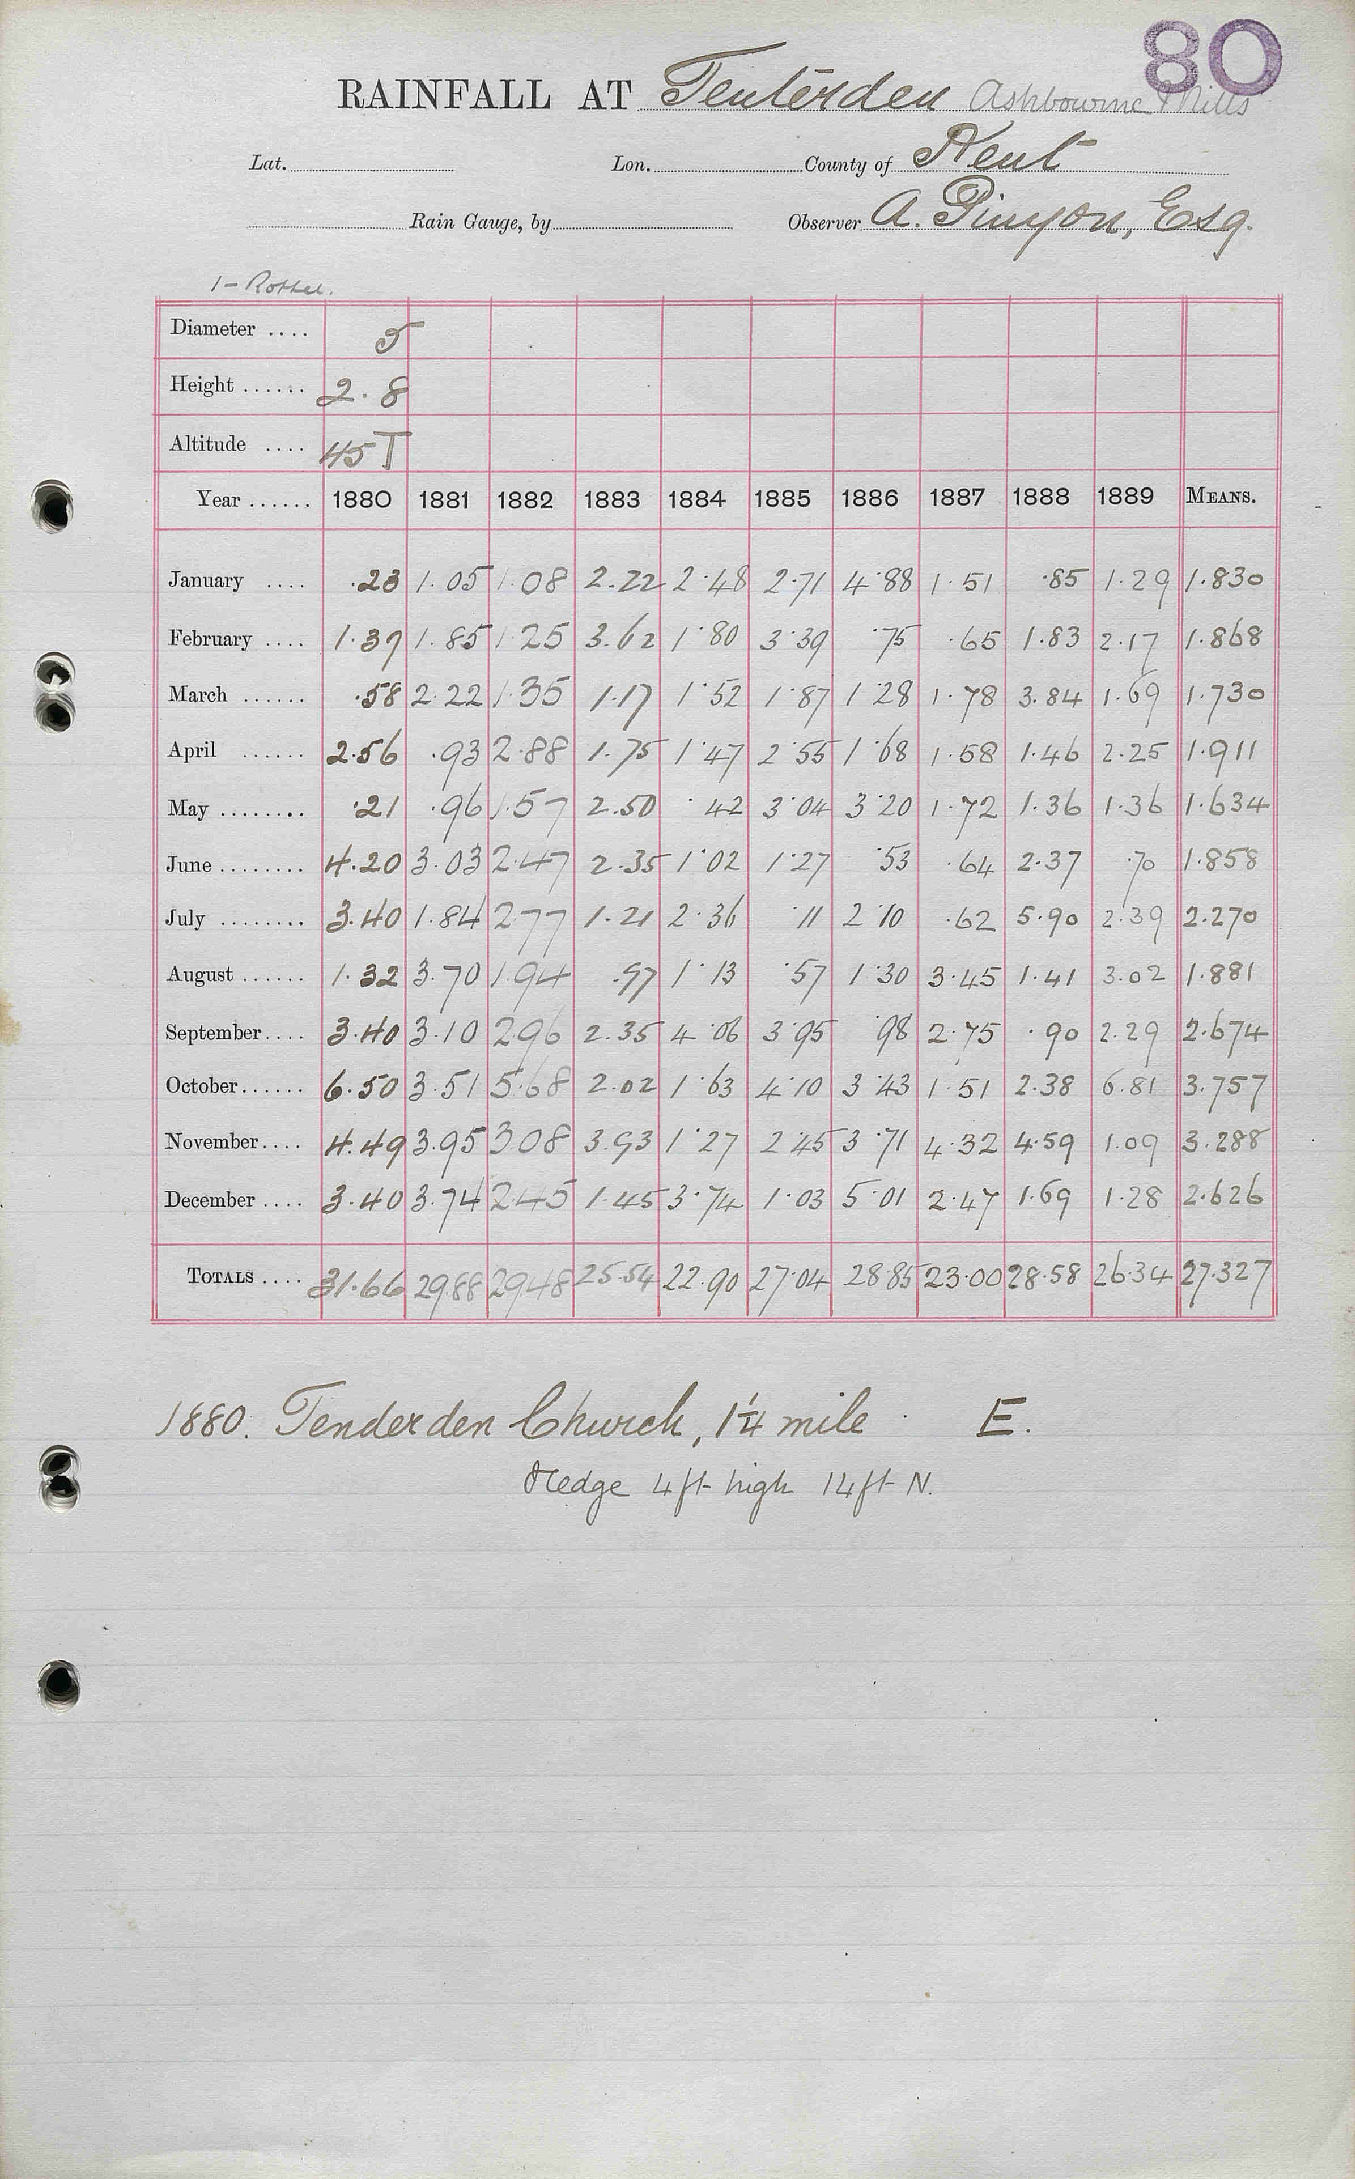 80
RAINFALL AT Tenterden Ashbourne Mills
Lat. Lon. County of Kent
Rain Gauge, by Observer A. Pinyon, Esq.
1 - Rother.
Diameter .... 5
Height ...... 2.8
Altitude .... 45 T
Year ...... 1880 1881 1882 1883 1884 1885 1886 1887 1888 1889 MEANS.
January .... .23 1.05 1.08 2.22 2.48 2.71 4.88 1.51 .85 1.29 1.830
February .... 1.37 1.85 1.25 3.62 1.80 3.39 .75 .65 1.83 2.17 1.868
March ...... .58 2.22 1.35 1.17 1.52 1.87 1.28 1.78 3.84 1.69 1.730
April ...... 2.56 .93 2.88 1.75 1.47 2.55 1.68 1.58 1.46 2.25 1.911
May ........ .21 .96 1.57 2.50 .42 3.04 3.20 1.72 1.36 1.36 1.634
June ........ 4.20 3.03 2.47 2.35 1.02 1.27 .53 .64 2.37 .70 1.858
July ........ 3.40 1.84 2.77 1.21 2.36 .11 2.10 .62 5.90 2.39 2.270
August ...... 1.32 3.70 1.94 .97 1.13 .57 1.30 3.45 1.41 3.02 1.881
September.... 3.40 3.10 2.96 2.35 4.06 3.95 .98 2.75 .90 2.29 2.674
October...... 6.50 3.51 5.68 2.02 1.63 4.10 3.43 1.51 2.38 6.81 3.757
November.... 4.49 3.95 3.08 3.93 1.27 2.45 3.71 4.32 4.59 1.09 3.288
December .... 3.40 3.74 2.45 1.45 3.74 1.03 5.01 2.47 1.69 1.28 2.626
TOTALS .... 31.66 29.88 29.48 25.54 22.90 27.04 28.85 23.00 28.58 26.34 27.327
1880. Tenderden Church, 1 1/4 mile E.
Hedge 4 ft high 14 ft N.